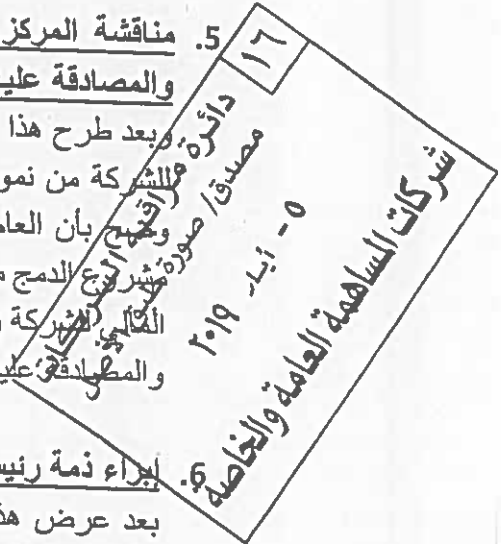 5. مناقشة المركز
والمصادقة علي
وبعد طرح هذا
للشركة من نمو
وضح بأن العام
مشروع الدمج م
المالي للشركة
والمصادقة علي
6. إبراء ذمة رئيس
بعد عرض هذ
١٦
دائرة مراقبة الشركات
مصدق/ صورة
٥ - أيار ٢٠١٩
شركات المساهمة العامة والخاصة